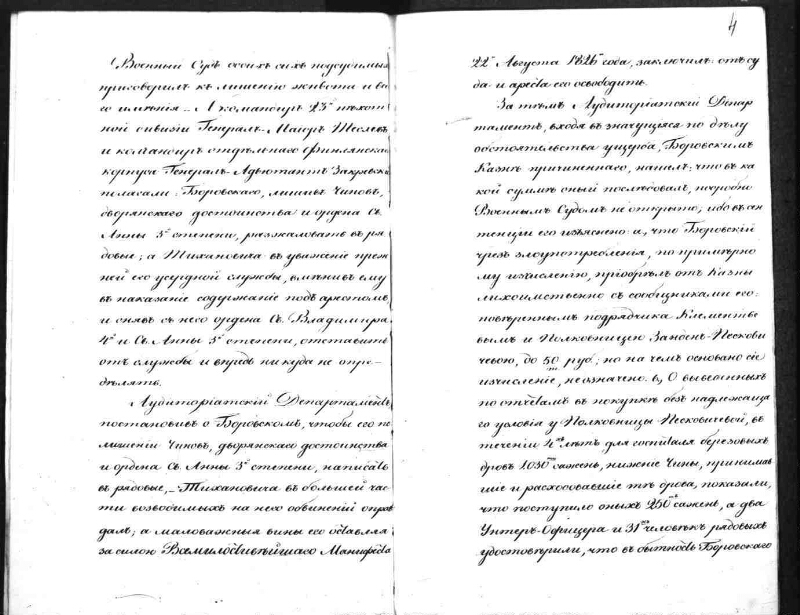 Военный Судъ обоихъ сихъ подсудимыхъ
приговорилъ къ лишенію живота и все
го имѣнія. — А командиръ 23й пѣхот
ной дивизіи Генералъ-Маіоръ Теслевъ
и командиръ отдѣльнаго финляндскаго
корпуса Генералъ-Адъютантъ Закревскій
полагали: Боровскаго, лишивъ Чиновъ,
дворянскаго достоинства и ордена Св.
Анны 3й степени, разжаловать въ ря
довые; а Тихановича въ уваженіе преж
ней его усердной службы, вмѣнивъ ему
въ наказаніе содержаніе подъ арестомъ
и снявъ съ него ордена Св. Владимира
4й и Св. Анны 3й степени, отставить
отъ службы и впредь никуда не опре-
дѣлять.
Аудиторіатскій Департаментъ,
постановивъ о Боровскомъ, чтобы его по
лишеніи Чиновъ, дворянскаго достоинства
и ордена Св. Анны 3й степени, написать
въ рядовые, — Тихановича въ большей час
ти возводимыхъ на него обвиненій оправ
далъ; а маловажныя вины его оставляя
за силою Всемилостивѣйшаго Манифеста
4
22го Августа 1826 года, заключилъ: отъ су
да и ареста его освободить.
За тѣмъ Аудиторіатскій Депар
таментъ, входя въ значущіяся по дѣлу
обстоятельства ущерба, Боровскимъ
Казнѣ причиненнаго, нашелъ: что въ ка
кой суммѣ оный послѣдовалъ, подробно
Военнымъ Судомъ не открыто; ибо въ сен
тенціи его изъяснено: а, что Боровскій
чрезъ злоупотребленія, по примѣрно
му исчисленію, пріобрѣлъ отъ Казны
лихоимственно съ сообщниками его:
повѣреннымъ подрядчика Клементье
вымъ и Полковницею
чевою, до 50 руб.; но на чемъ основано сіе
исчисленіе, не означено. в, О выведенныхъ
по отчетамъ въ покупкѣ безъ надлежаща
го условія у Полковницы Песковичевой, въ
теченіи 4хъ лѣтъ для госпиталя березовыхъ
дровъ 1030 саженъ, нижніе Чины, принимав
шіе и расходовавшіе тѣ дрова, показали,
что поступило оныхъ 250 саженъ, а два
Унтеръ-Офицера и 31 человѣкъ рядовыхъ
удостовѣрили, что въ бытность Боровскаго